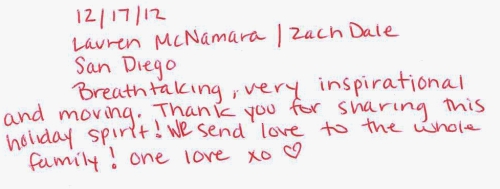 12/17/12
Lauren McNamara / Zach Dale
San Diego
Breathtaking, very inspirational
and moving. Thank you for sharing this
holiday spirit! We send love to the whole
family! one love xo ♡